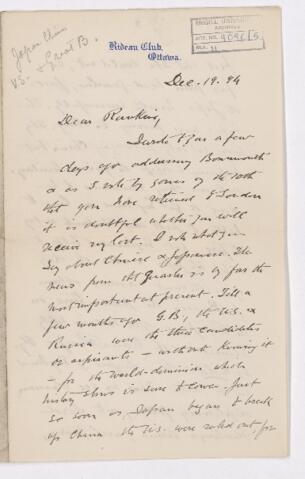 Japan China
vs. & Great B.
Rideau Club,
Ottawa.
McGILL UNIVERSITY
ARCHIVES
ACC. NO.
REF. 31
Dec. 19. 94
Dear Rankin,
I wrote you a few
days ago addressing Bournemouth
& as I note by yours of the 10th
that you have returned to London
it is doubtful whether you will
receive my last. I note what you
say about Chinese & Japanese. The
news from that quarter is by far the
most important at present. Till a
few months ago G.B., the U.S. &
Russia were the three candidates
or aspirants — without knowing it
— for the world-dominion which
history shows is sure to come. Just
so soon as Japan began to break
up China the U.S. were ruled out, for